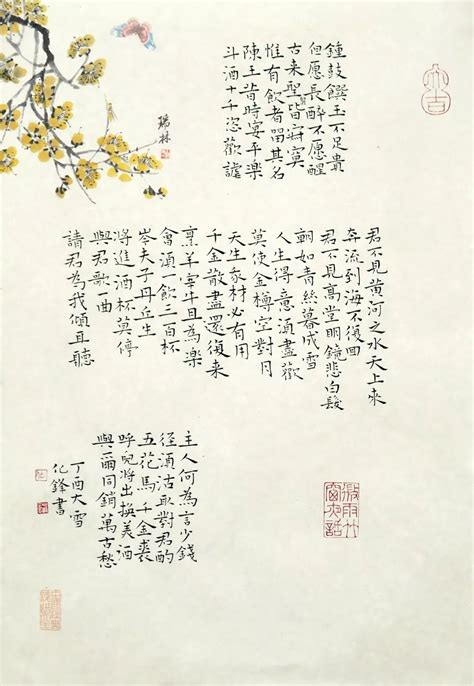 大吉
鍾鼓饌玉不足貴
但愿長醉不愿醒
古來聖皆寂寞
惟有飲者留其名
陳王昔時宴平樂
斗酒十千恣歡謔
瑞林
君不見黃河之水天上來
奔流到海不復回
君不見高堂明鏡悲白髮
朝如青絲暮成雪
人生得意須盡歡
莫使金樽空對月
天生我材必有用
千金散盡還復來
烹羊宰牛且為樂
會須一飲三百杯
岑夫子丹丘生
將進酒杯莫停
與君歌一曲
請君為我傾耳聽
微雨竹
窗夜話
主人何為言少錢
徑須沽取對君酌
五花馬千金裘
呼兒將出換美酒
與爾同銷萬古愁
丁酉大雪
化鋒書